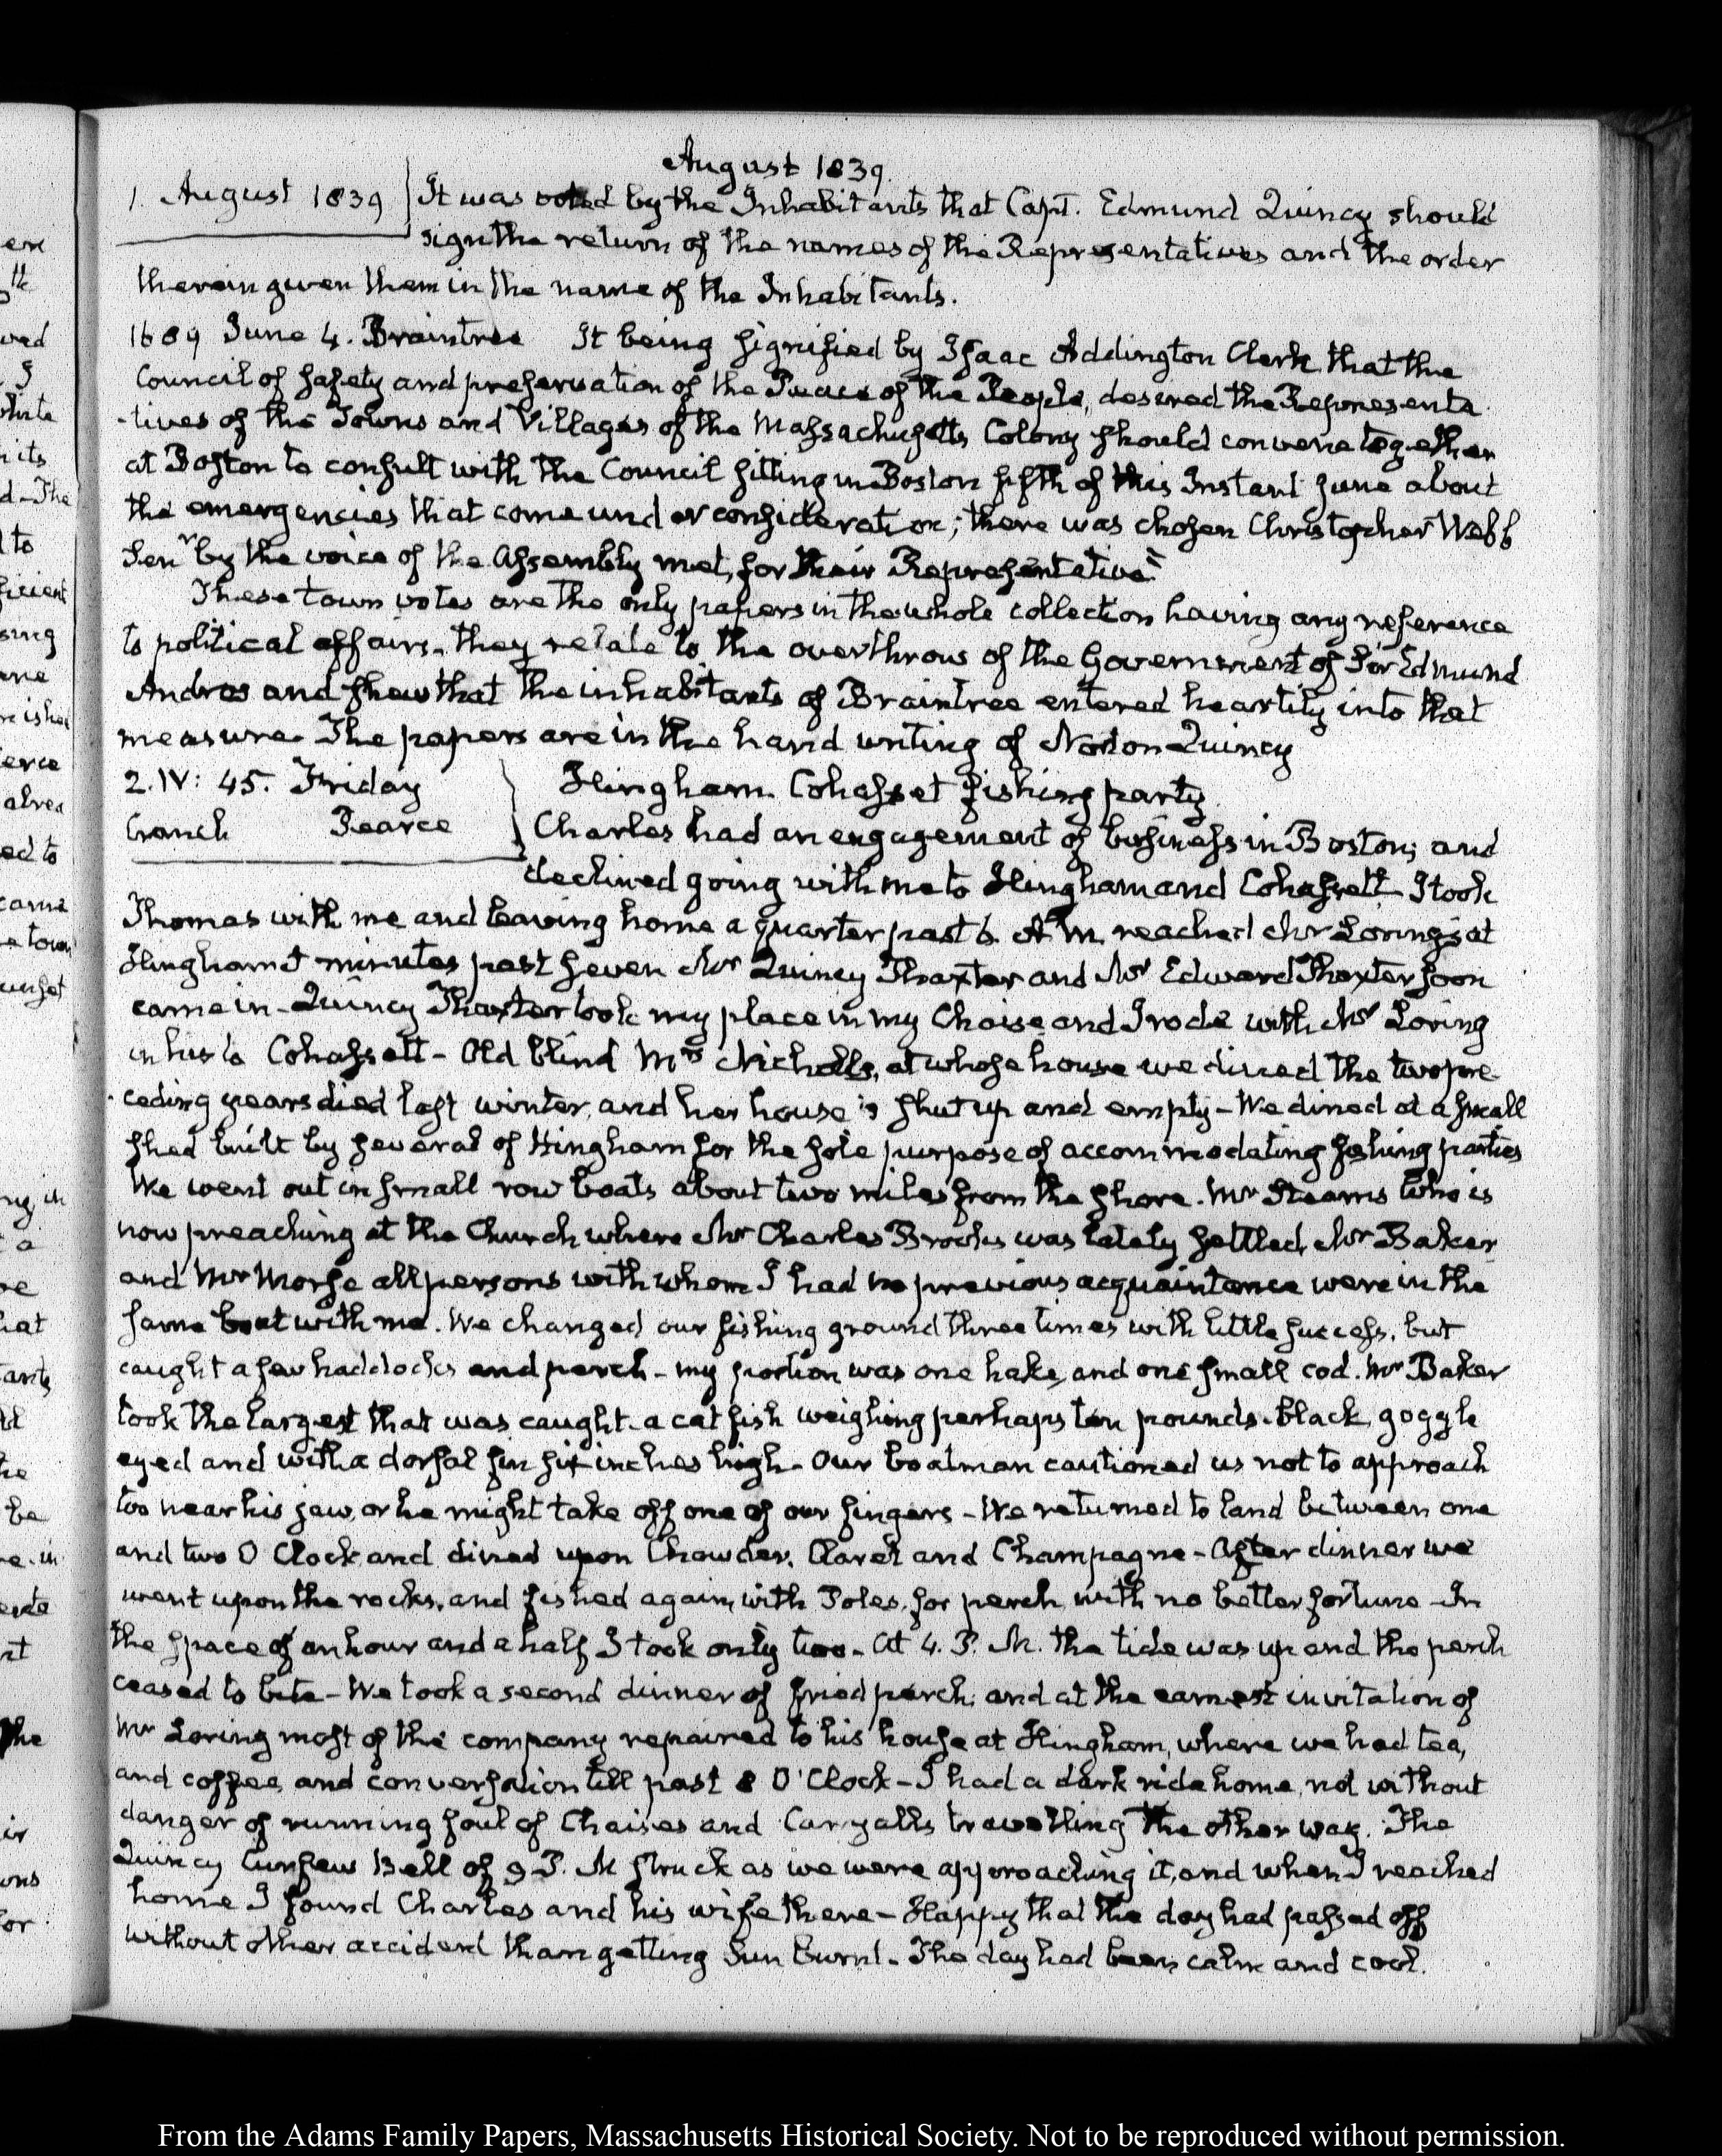 August 1839.
1. August 1839 It was voted by the Inhabitants that Capt. Edmund Quincy should
sign the return of the names of the Representatives and the order
therein given them in the name of the Inhabitants.
1689 June 4. Braintree It being signified by Isaac Addington Clerk that the
Council of safety and preservation of the Peace of the People, desired the Representa
-tives of the Towns and Villages of the Massachusetts Colony should convene together
at Boston to consult with the Council sitting in Boston fifth of this Instant June about
the emergencies that come under consideration; there was chosen Christopher Webb
Senr by the voice of the Assembly met, for their Representative"
These town votes are the only papers in the whole collection having any reference
to political affairs. they relate to the overthrow of the Government of Sir Edmund
Andros and shew that the inhabitants of Braintree entered heartily into that
measure. The papers are in the hand writing of Norton Quincy
2. IV: 45. Friday Hingham. Cohasset fishing party
Cranch Pearce Charles had an engagement of business in Boston; and
declined going with me to Hingham and Cohassett I took
Thomas with me and leaving home a quarter past 6. A.M. reached Mr Loring's at
Hingham 5 minutes past seven Mr Quincy Thaxter and Mr Edward Thaxter soon
came in - Quincy Thaxter took my place in my Chaise and I rode with Mr Loring
in his to Cohassett - Old blind Mrs Nicholls, at whose house we dined the two pre-
ceding years died last winter, and her house is shut up and empty - We dined at a small
shed built by several of Hingham for the sole purpose of accommodating fishing parties
We went out in small row boats about two miles from the shore. Mr Stearns who is
now preaching at the Church where Mr Charles Brooks was lately settled, Mr Baker
and Mr Morse all persons with whom I had no previous acquaintance were in the
same boat with me. We changed our fishing ground three times with little success, but
caught a few haddocks and perch - my portion was one hake, and one small cod. Mr Baker
took the largest that was caught. a cat fish weighing perhaps ten pounds. black, goggle
eyed and with a dorsal fin six inches high - Our boatman cautioned us not to approach
too near his jaw, or he might take off one of our fingers - We returned to land between one
and two O Clock and dined upon Chowder, Claret and Champagne - After dinner we
went upon the rocks, and fished again, with Poles, for perch, with no better fortune - In
the space of an hour and a half I took only two - At 4. P. M. the tide was up and the perch
ceased to bite - We took a second dinner of fried perch, and at the earnest invitation of
Mr Loring most of the company repaired to his house at Hingham, where we had tea,
and coffee, and conversation till past 8 O'Clock - I had a dark ride home, not without
danger of running foul of Chaises and Carryalls travelling the other way. The
Quincy Curfew Bell of 9 P. M struck as we were approaching it, and when I reached
home I found Charles and his wife there - Happy that the day had passed off
without other accident than getting Sun burnt - The day had been calm and cool.
From the Adams Family Papers, Massachusetts Historical Society. Not to be reproduced without permission.